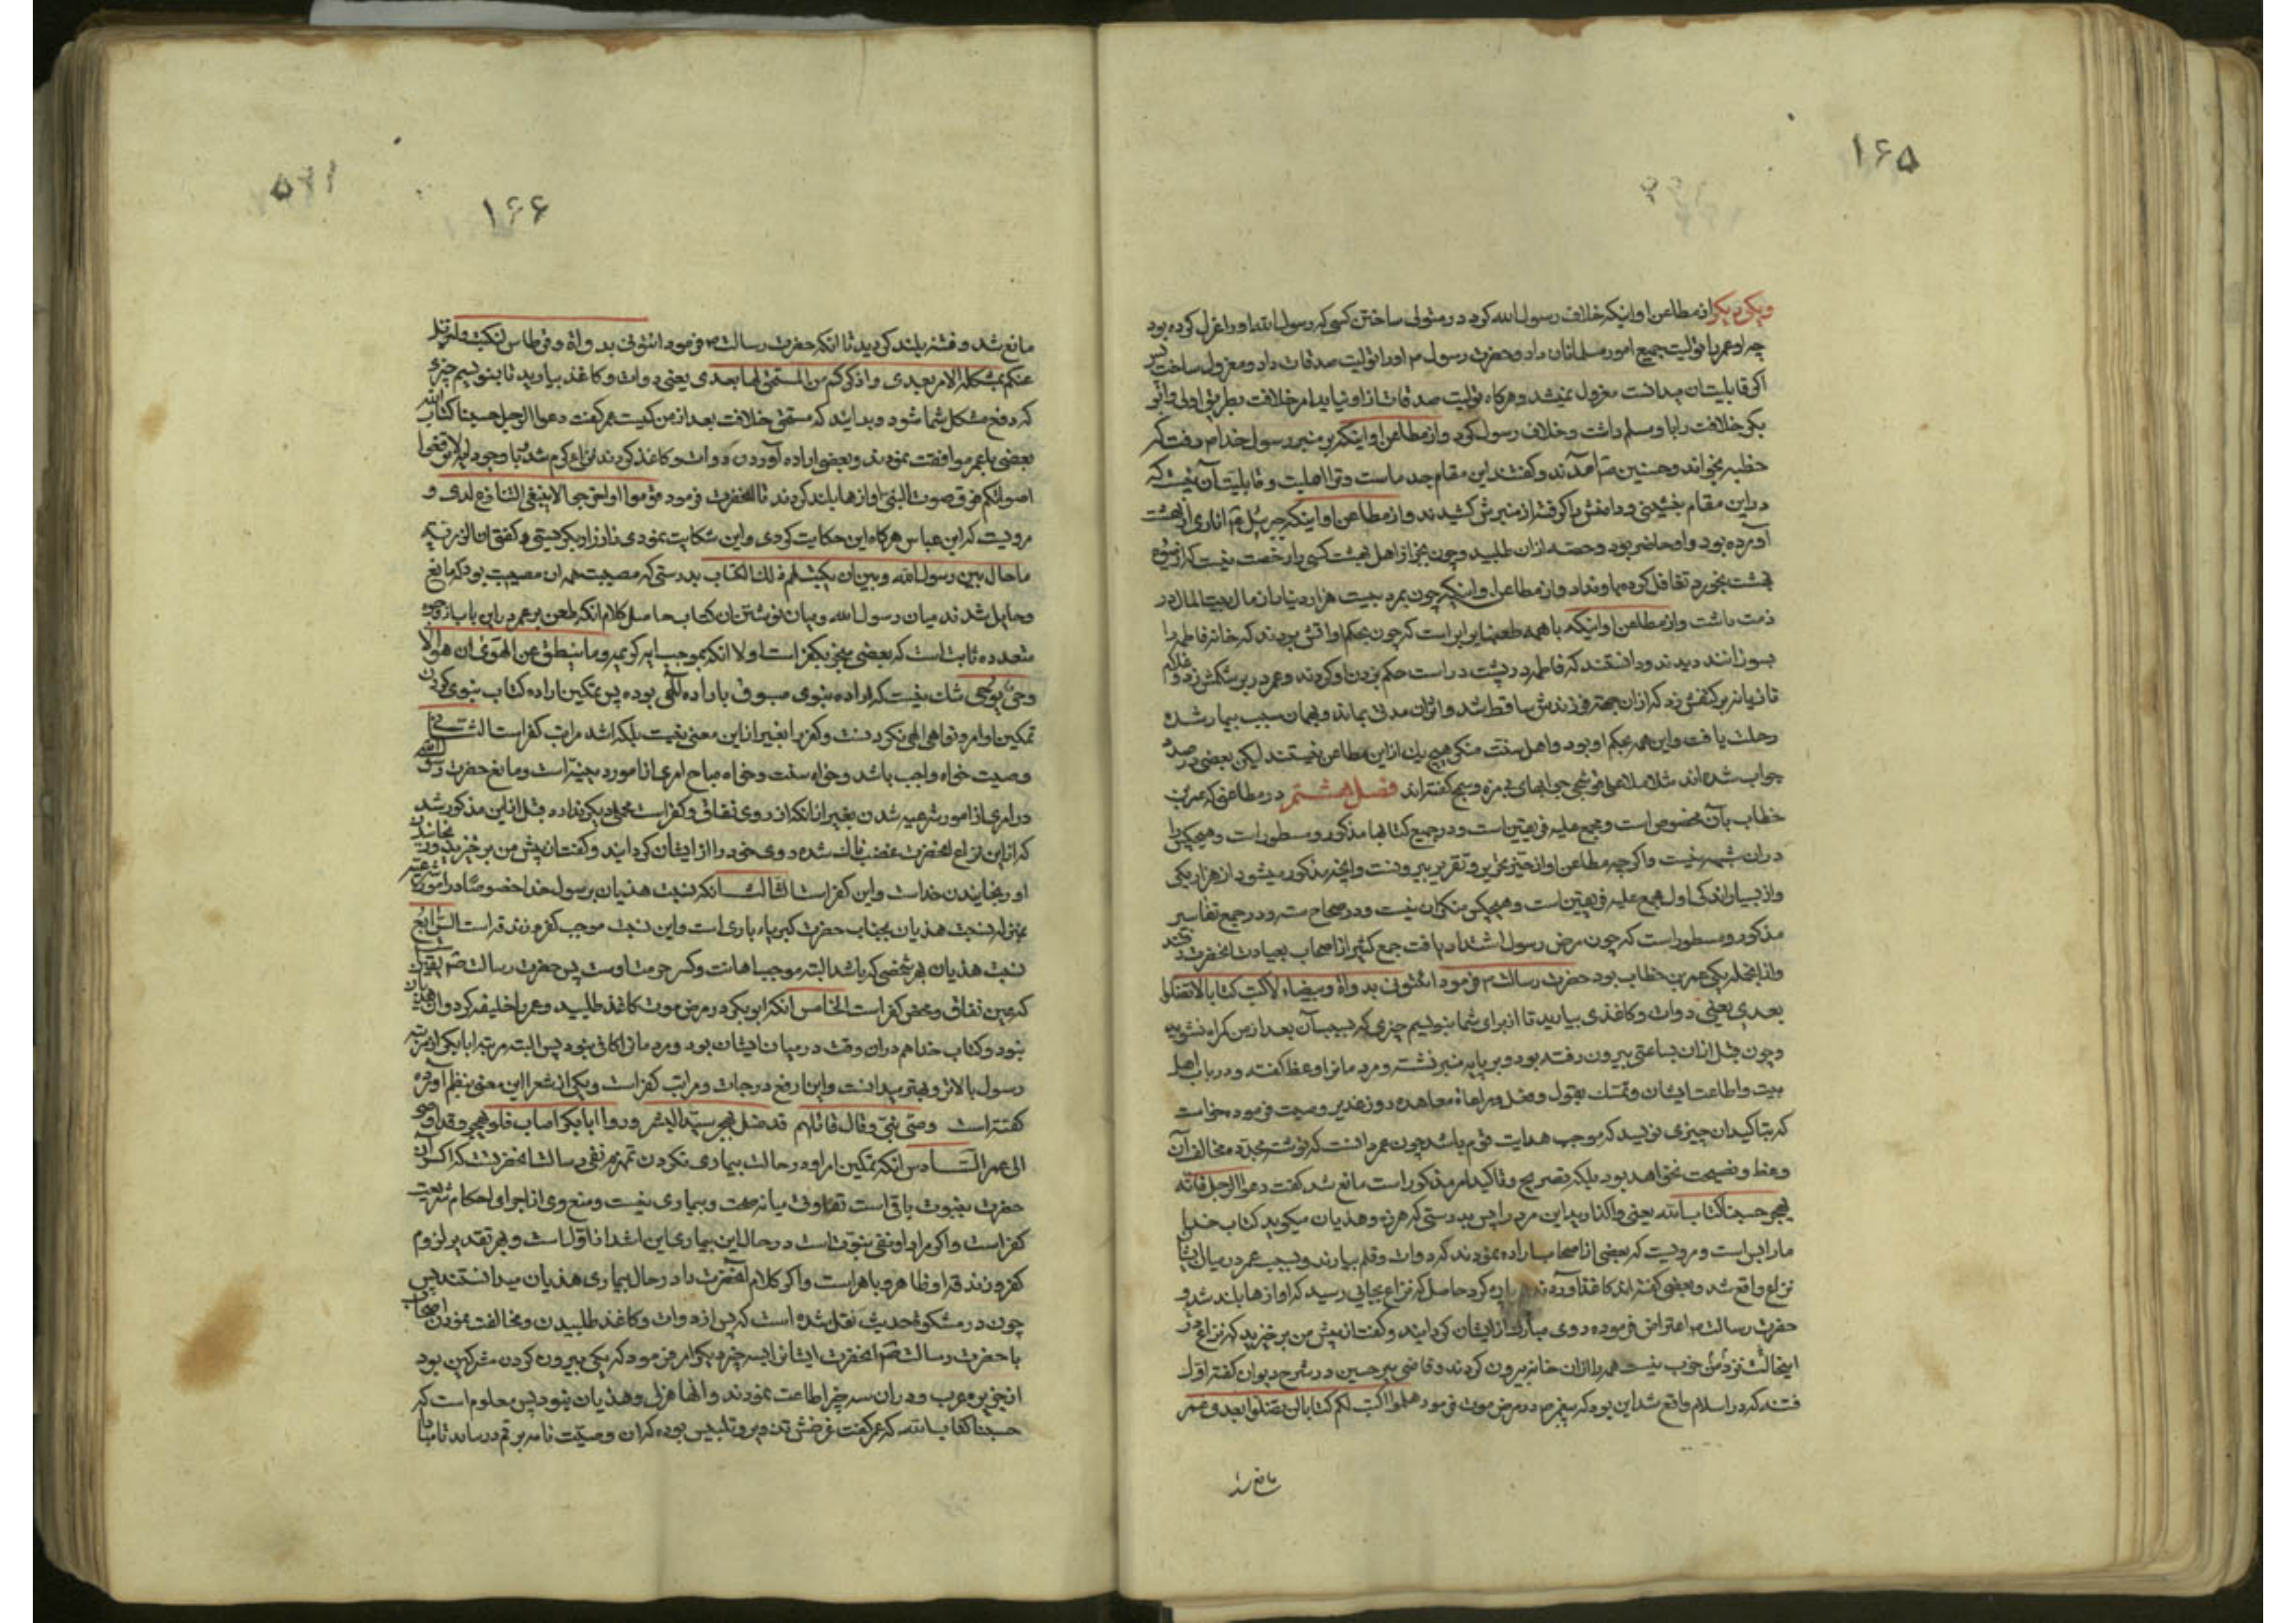 ۱۶۵
ویکی دیگر از مطاعن او اینکه خلاف رسول الله کرد در متولی ساختن کسی که رسول الله او را عزل کرده بود
چه او عمر را تولیت جمیع امور مسلمانان داد و حضرت رسول م او را تولیت صدقات داد و معزول ساخت پس
اگر قابلیت آن میداشت معزول نمیشد و هرگاه تولیت صدقات از او نیاید امر خلافت بطریق اولی و ابو
بکر خلافت را با و مسلم داشت و خلاف رسول کرد و از مطاعن او اینکه بر منبر رسول خدا م رفت که
خطبه بخواند و حسنین آمدند و گفتند این مقام جد ماست و ترا اهلیت و قابلیت آن نیست که
در این مقام بنشینی و دامنش را گرفته از منبرش کشیدند و از مطاعن او اینکه جبرئیل اناری از بهشت
آورده بود و او حاضر بود و حصه از ان طلبید و چون بجز از اهل بهشت کسی را رخصت نیست که از میوه
بهشت بخورد تغافل کرده باو نداد و از مطاعن او اینکه چون بمرد بیست هزار دینار از مال بیت المال در
ذمت داشت و از مطاعن او اینکه با همه طعنها برابر است که چون بحکم او اتش بردند که خانه فاطمه را
بسوزانند دیدند و دانستند که فاطمه در پشت در است حکم بزدن او کردند و عمر در بر شکمش زد و غلام
تازیانه بر کتفش زد که از ان جهة فرزندش ساقط شد و اثر ان مدتی بماند و بهمان سبب بیمار شده
رحلت یافت و این همه بحکم او بود و اهل سنت منکر هیچ یک از این مطاعن نیستند لیکن بعضی در صدد
جواب شده اند مثل ملا علی قوشجی جوابهای بی مزه و سمج گفته اند فصل هشتم در مطاعنی که عمر بن
خطاب بآن مخصوص است و مجمع علیه فریقین است و در جمیع کتابها مذکور و مسطور است و هیچکس را
در ان شبهه نیست و اگرچه مطاعن او از حیز تحریر و تقریر بیرونست و اینجه مذکور میشود از هزار یکی
و از بسیار اندکی اول مجمع علیه فریقین است و هیچکس منکر ان نیست و در صحاح سته و در جمع تفاسیر
مذکور و مسطور است که چون مرض رسول اشتداد یافت جمع کثیر از اصحاب بعیادت انحضرت
و از انجمله یکی عمر بن خطاب بود حضرت رسالت م فرمود ائتونی بدواة وبیضاء لاکتب کتابا لا تضلوا
بعدی یعنی دوات و کاغذی بیارید تا از برای شما بنویسم چیزی که بسبب آن بعد از من گمراه نشوید
و چون قبل از ان بساعتی بیرون رفته بود و بر پایه منبر نشسته و مردمانرا وعظ گفته و در باب اهل
بیت و اطاعت ایشان و تمسک بقول و فعل و مراعاة معاهده روز غدیر وصیت فرموده خواست
که بتاکید ان چیزی نویسد که موجب هدایت قوم باشد چون عمر دانست که نوشته مجدد مخالف آن
وعظ و نصیحت نخواهد بود بلکه تصریح و تاکید امر مذکور است مانع شد گفت دعوا الرجل فانه
لیهجر حسبنا کتاب الله یعنی واگذارید این مرد را پس بدرستی که هرزه و هذیان میگوید کتاب خدا
ما را بس است و مرویست که بعضی از اصحاب اراده نمودند که دوات و قلم بیارند و بسبب عمر در میان ایشان
نزاع واقع شد و بعضی گفته اند کاغذ آوردند پاره کرد حاصل که نزاع بجایی رسید که اوازها بلند شد و
حضرت رسالت م اعتراض فرموده روی مبارک از ایشان گردانید و گفت از پیش من برخیزید که نزاع در
اینحالت نزد من خوب نیست همه را از ان خانه بیرون کردند و قاضی میر حسین در شرح دیوان گفته اول
فتنه که در اسلام واقع شد این بود که پیغمبر م در مرض موت فرمود هلموا اکتب لکم کتابا لن تضلوا بعدی و عمر
مانع شد
۱۶۶
مانع شد و فتنه بلند گردید تا انکه حضرت رسالت م فرمود ائتونی بدواة و قرطاس لنکتب
عنکم مشکلة الامر بعدی و اذکر لکم من المستحق لها بعدی یعنی دوات و کاغذ بیارید تا بنویسم چیزی
که دفع مشکل شما شود و بدانید که مستحق خلافت بعد از من کیست عمر گفت دعوا الرجل حسبنا کتاب الله
بعضی با عمر موافقت نمودند و بعضی اراده آوردن دوات و کاغذ کردند نزاع گرم شد با وجود ایه لا ترفعوا
اصواتکم فوق صوت النبی اوازها بلند کردند تا انحضرت فرمود قوموا اواخرجوا لا ینبغی التنازع لدی و
مرویست که ابن عباس هرگاه این حکایت کردی و این شکایت نمودی زار زار بگریستی و گفتی ان الرزیة
ما حال بین رسول الله و بین ان یکتب لهم ذلک الکتاب بدرستی که مصیبت همه ان مصیبت بود که مانع
و حایل شدند میان رسول الله و میان نوشتن ان کتاب حاصل کلام انکه طعن بر عمر در این باب از وجوه
متعدده ثابت است که بعضی منجر بکفر است اولا انکه بموجب ایه کریمه و ما ینطق عن الهوی ان هو الا
وحی یوحی شک نیست که اراده نبوی مسبوق باراده الهی بوده پس تمکین اراده کتاب نبوی کردن
تمکین اوامر و نواهی الهی نکردنست و کفر را بغیر از این معنی نیست بلکه اشد مراتب کفر است الثانی
وصیت خواه واجب باشد و خواه سنت و خواه مباح امری از امور دینیه است و مانع حضرت رسول الله
در امری از امور شرعیه شدن بغیر از انکه از روی نفاق و کفر است محملی دیگر ندارد قبل از این مذکور شد
که از این نزاع انحضرت غضبناک شده روی خود را از ایشان گردانید و گفت از پیش من برخیزید و رنجانیدن
او رنجانیدن خداست و این کفر است الثالث انکه نسبت هذیان برسول خدا خصوصا در امور شرعیه
بمنزله نسبت هذیان بجناب حضرت کبریاء باری است و این نسبت موجب کفر و زندقه است الرابع
نسبت هذیان بهر شخصی که باشد البته موجب اهانت و کسر حرمت اوست پس حضرت رسالت
که عین نفاق و محض کفر است الخامس انکه ابو بکر در مرض موت کاغذ طلبید و عمر را خلیفه کرد و ان هذیان
نبود و کتاب خدا هم در ان وقت در میان ایشان بود و مردمانرا کافی نبود پس البته مرتبه ابا بکر از مرتبه
رسول بالاتر و بهتر میدانست و این ارفع درجات و مراتب کفر است و یکی از شعرا این معنی بنظم آورده
گفته است وصی نبی و قال قائلهم قد ضل یهجر سید البشر و رووا ابا بکر اصاب فلم یهجر وقد اوصی
الی عمر السادس انکه تمکین امر او در حالت بیماری نکردن نفی رسالت انحضرتست که اگر آن
حضرت بنبوت باقی است تفاوتی میانه صحت و بیماری نیست و منع وی از اجرای احکام شریعت
کفر است و اگر مراد او نفی نبوتست در حال این بیماری این اشد از اول است و بهر تقدیر لزوم
کفر و زندقه او ظاهر و باهر است و اگر کلام آنحضرت را در حال بیماری هذیان میدانستند پس
چون در مشکوة حدیث نقل شده است که پس از دوات و کاغذ طلبیدن و مخالفت نمودن اصحاب
با حضرت رسالت انحضرت ایشانرا بسه چیز دیگر امر فرمود که یکی بیرون کردن مشرکین بود
از جزیره عرب و در ان سه چیز اطاعت نمودند و انها هزل و هذیان نبود پس معلوم است که
حسبنا کتاب الله که عمر گفت غرضش تزویر و تلبیس بوده که ان وصیت نامه برقم در نیاید تا مبادا